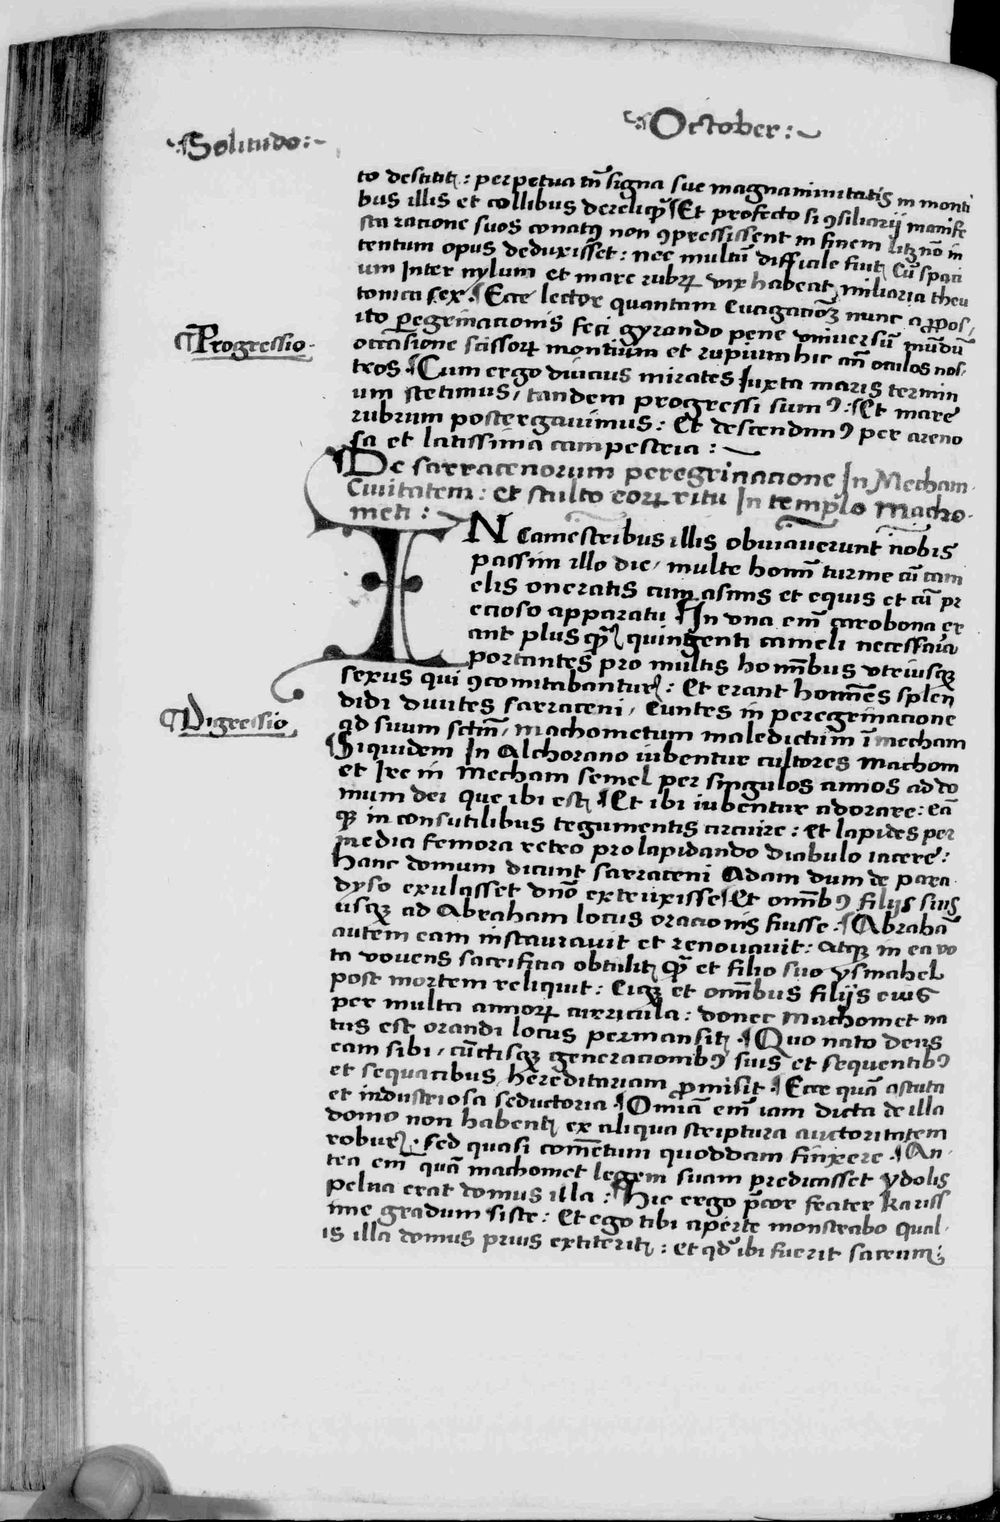 Solitudo:
October:
to destitit: perpetua tn̄ signa sue magnanimitatis in monti
bus illis et collibus dereliq̄ꝫ Et profecto si ꝯsiliarij manife
sta racione suos conatꝰ non ꝯpressissent in finem nō in
tentum opus deduxisset: nec multū difficile fuit Cū spaci
um Inter nylum et mare rubrꝝ vix habeat miliaria theu
tonica sex. Ecce lector quantam Euagacioꝫ nunc a ꝓpos
ito peregrinacionis feci gyrando pene vniuersū mūdū
Progressio
occasione scissorꝝ montium et rupium hic an̄ oculos nos
tros. Cum ergo diucius mirates Iuxta maris termin
um stetimus, tandem progressi sumꝰ: Et mare
rubrum postergauimus: Et descendimꝰ per areno
sa et latissima campestria:
De sarracenorum peregrinacione In Mecham
Ciuitatem: et stulto eorꝝ ritu In templo Macho
meti:
IN Camestribus illis obuiauerunt nobis
passim illo die, multe homīn turme cū cam
elis oneratis cum asinis et equis et cū pr
ecioso apparatu. In vna em̄ carobona er
ant plusq̄ꝫ quingenti cameli necessaria
portantes pro multis homībus vtriusqꝫ
sexus qui ꝯcomitabantur: Et erant homīes splen
didi diuites sarraceni, Euntes in peregrinacione
Digressio
ad suum sctm̄, machometum maledictum ī mecham
Siquidem In Alchorano iubentur cultores Machom
et Ire in Mecham semel per singulos annos ad do
mum dei que ibi est. Et ibi iubentur adorare: eā
qꝫ in consutilibus tegumentis circuire: Et lapides per
media femora retro pro lapidando diabulo iacere:
hanc domum dicunt sarraceni Adam dum de para
dyso exulasset dn̄o extruxisse Et omībꝰ filijs suis
usqꝫ ad Abraham locus oracionis fuisse. Abrahā
autem eam instaurauit et renouauit: atqꝫ in ea vo
ta vouens sacrificia obtulit qꝫ et filio suo ysmahel
post mortem reliquit: Eiqꝫ et omībus filijs eius
per multa annorꝝ curricula: donec Machomet na
tus est orandi locus permansit. Quo nato deus
eam sibi, cūctisqꝫ generacionibꝰ suis et sequentibꝰ
et sequacibus hereditariam ꝓmisit. Ecce quā astuta
et industriosa seductoria. Omīa em̄ iam dicta de illa
domo non habent ex aliqua scriptura auctoritatem
robur. sed quasi comētum quoddam finxere. An
tea em̄ quā machomet legem suam predicasset ydolis
pelna erat domus illa: Hic ergo p̄cor frater kariss
ime gradum siste: Et ego tibi aperte monstrabo qual
is illa domus prius extiterit: et qd̄ ibi fuerit sacrum: